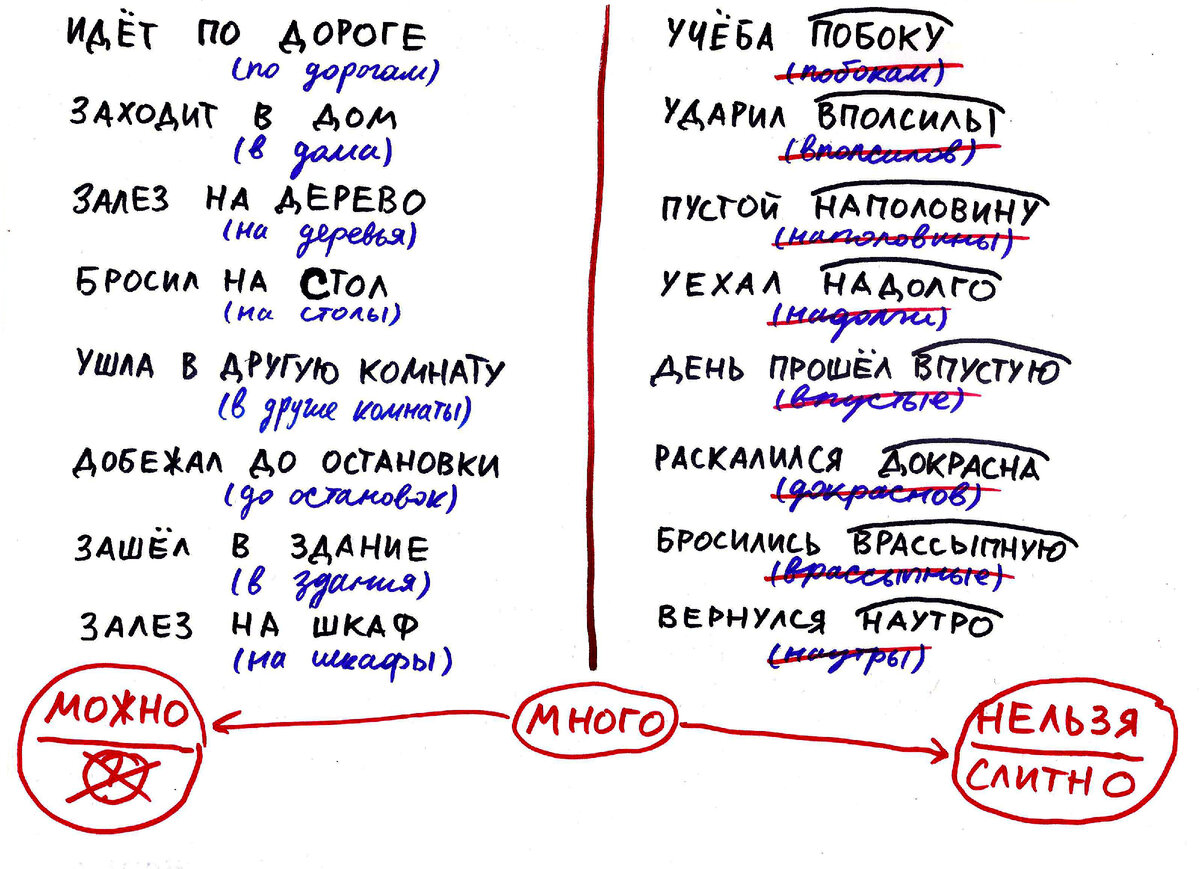 ИДЁТ ПО ДОРОГЕ
(по дорогам)
ЗАХОДИТ В ДОМ
(в дома)
ЗАЛЕЗ НА ДЕРЕВО
(на деревья)
БРОСИЛ НА СТОЛ
(на столы)
УШЛА В ДРУГУЮ КОМНАТУ
(в другие комнаты)
ДОБЕЖАЛ ДО ОСТАНОВКИ
(до остановок)
ЗАШЁЛ В ЗДАНИЕ
(в здания)
ЗАЛЕЗ НА ШКАФ
(на шкафы)
УЧЁБА ПОБОКУ
(побокам)
УДАРИЛ ВПОЛСИЛЫ
(вполсилов)
ПУСТОЙ НАПОЛОВИНУ
(наполовины)
УЕХАЛ НАДОЛГО
(надолги)
ДЕНЬ ПРОШЁЛ ВПУСТУЮ
(впустые)
РАСКАЛИЛСЯ ДОКРАСНА
(докраснов)
БРОСИЛИСЬ ВРАССЫПНУЮ
(врассыпные)
ВЕРНУЛСЯ НАУТРО
(наутры)
МОЖНО
МНОГО
НЕЛЬЗЯ
СЛИТНО